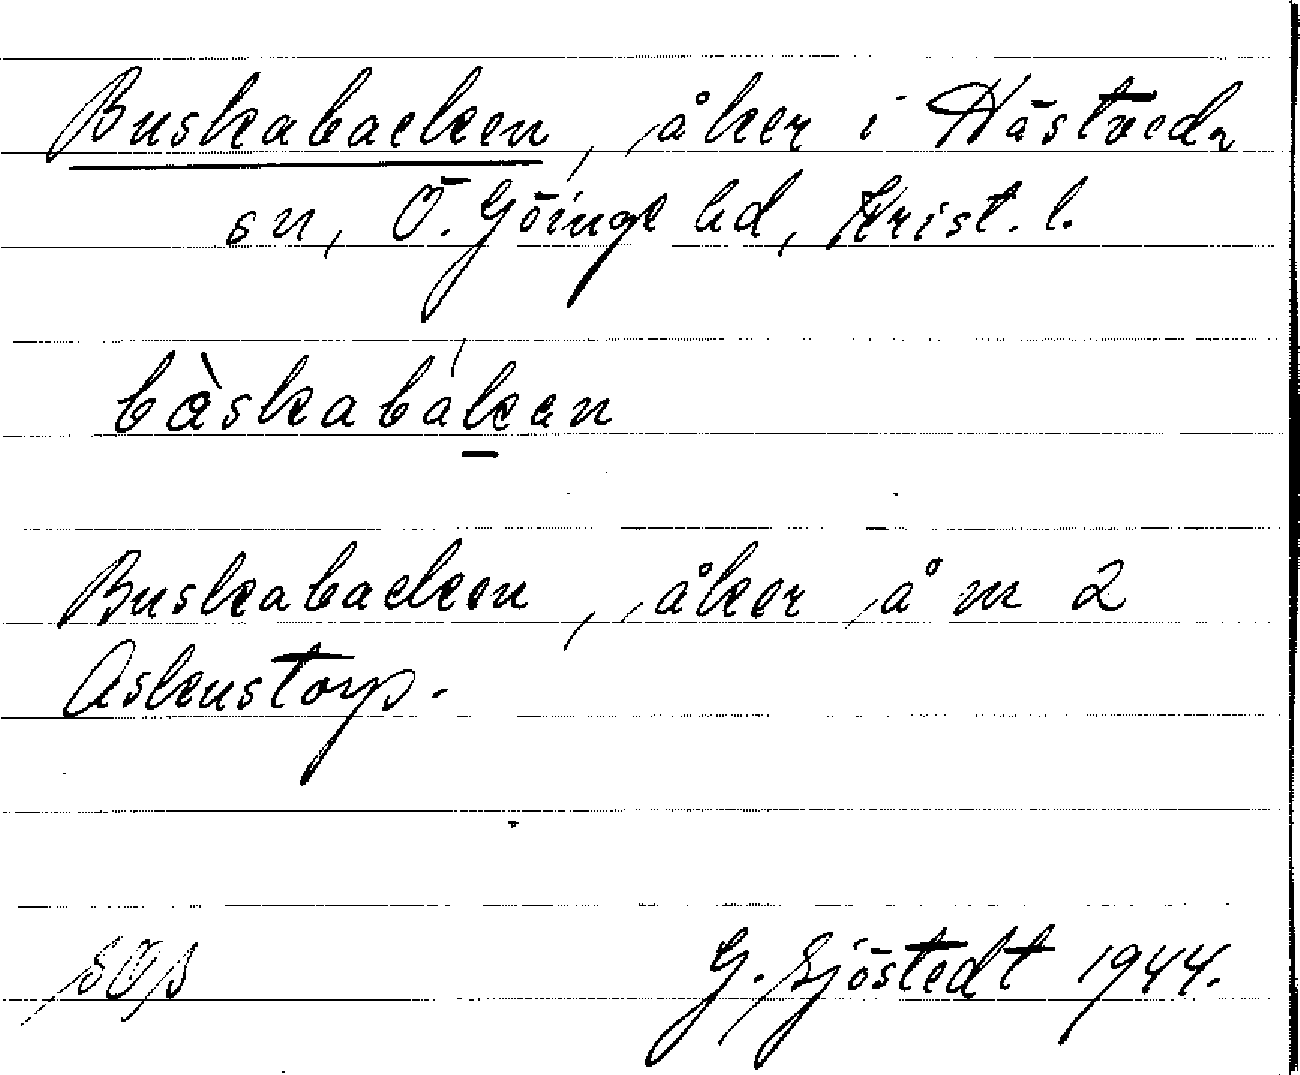 Buskabacken, åker i Hästveda
sn, Ö. Göinge hd, Krist. l.
bàskabákan
Buskabacken, åker å m 2
Askenstorp.
SOS
G. Sjöstedt 1944.